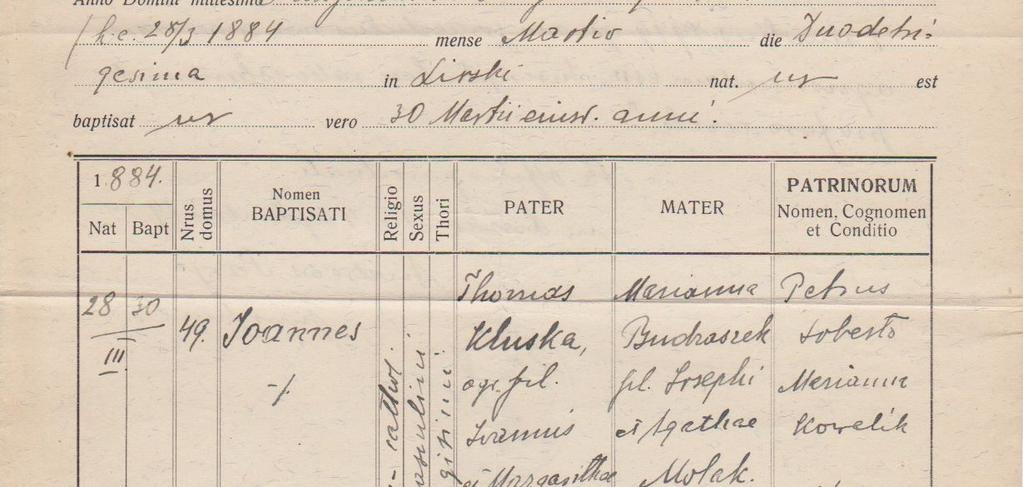 Anno Domini millesimo
(h.c. 28/3 1884 mense Martio die Duodetri-
gesima in Lirski nat. us est
baptisat us vero 30 Martii eiusd. anni.
1884.
Nat Bapt
Nrus domus
Nomen BAPTISATI
Religio
Sexus
Thori
PATER
MATER
PATRINORUM
Nomen, Cognomen
et Conditio
28 30
III
49.
Joannes
-/.
cathol.
masculini
Thomas
Kluska,
agr. fil.
Joannis
et Margarithae
Marianna
Budraszek
fil. Josephi
et Agathae
Molak.
Petrus
Sobesto
Marianna
Kowalik